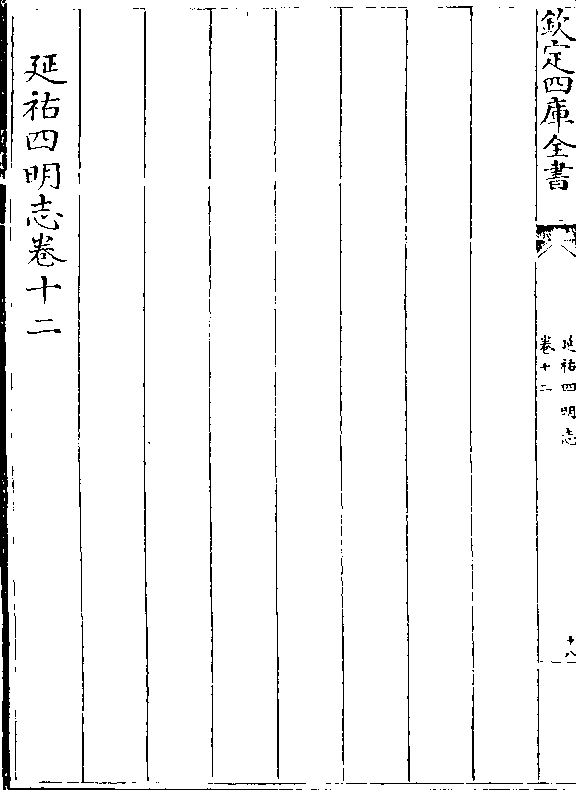 欽定四庫全書
延祐四明志
卷十二
十八
延祐四明志卷十二